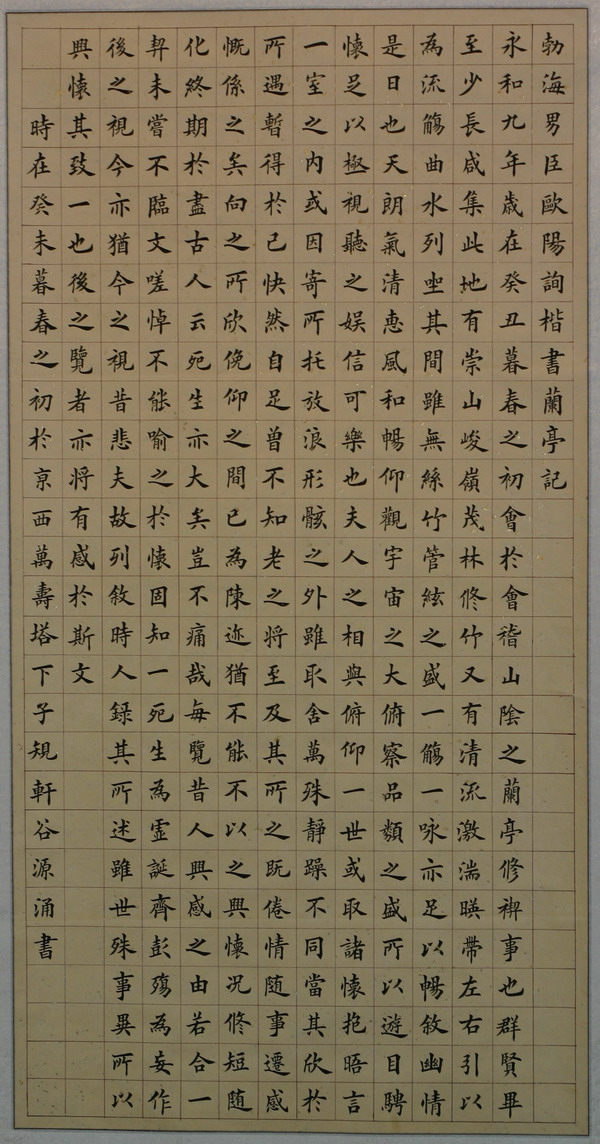 勃海男臣歐陽詢楷書蘭亭記
永和九年歲在癸丑暮春之初會於會稽山陰之蘭亭修禊事也群賢畢
至少長咸集此地有崇山峻嶺茂林修竹又有清流激湍暎帶左右引以
為流觴曲水列坐其間雖無絲竹管絃之盛一觴一咏亦足以暢敘幽情
是日也天朗氣清惠風和暢仰觀宇宙之大俯察品類之盛所以遊目騁
懷足以極視聽之娛信可樂也夫人之相與俯仰一世或取諸懷抱晤言
一室之內或因寄所托放浪形骸之外雖取舍萬殊靜躁不同當其欣於
所遇暫得於己快然自足曾不知老之將至及其所之既倦情随事遷感
慨係之矣向之所欣俛仰之間已為陳迹猶不能不以之興懷况修短随
化終期於盡古人云死生亦大矣豈不痛哉每覽昔人興感之由若合一
契未嘗不臨文嗟悼不能喻之於懷固知一死生為虛誕齊彭殤為妄作
後之視今亦猶今之視昔悲夫故列敘時人錄其所述雖世殊事異所以
興懷其致一也後之覽者亦將有感於斯文
時在癸未暮春之初於京西萬壽塔下子規軒谷源涌書